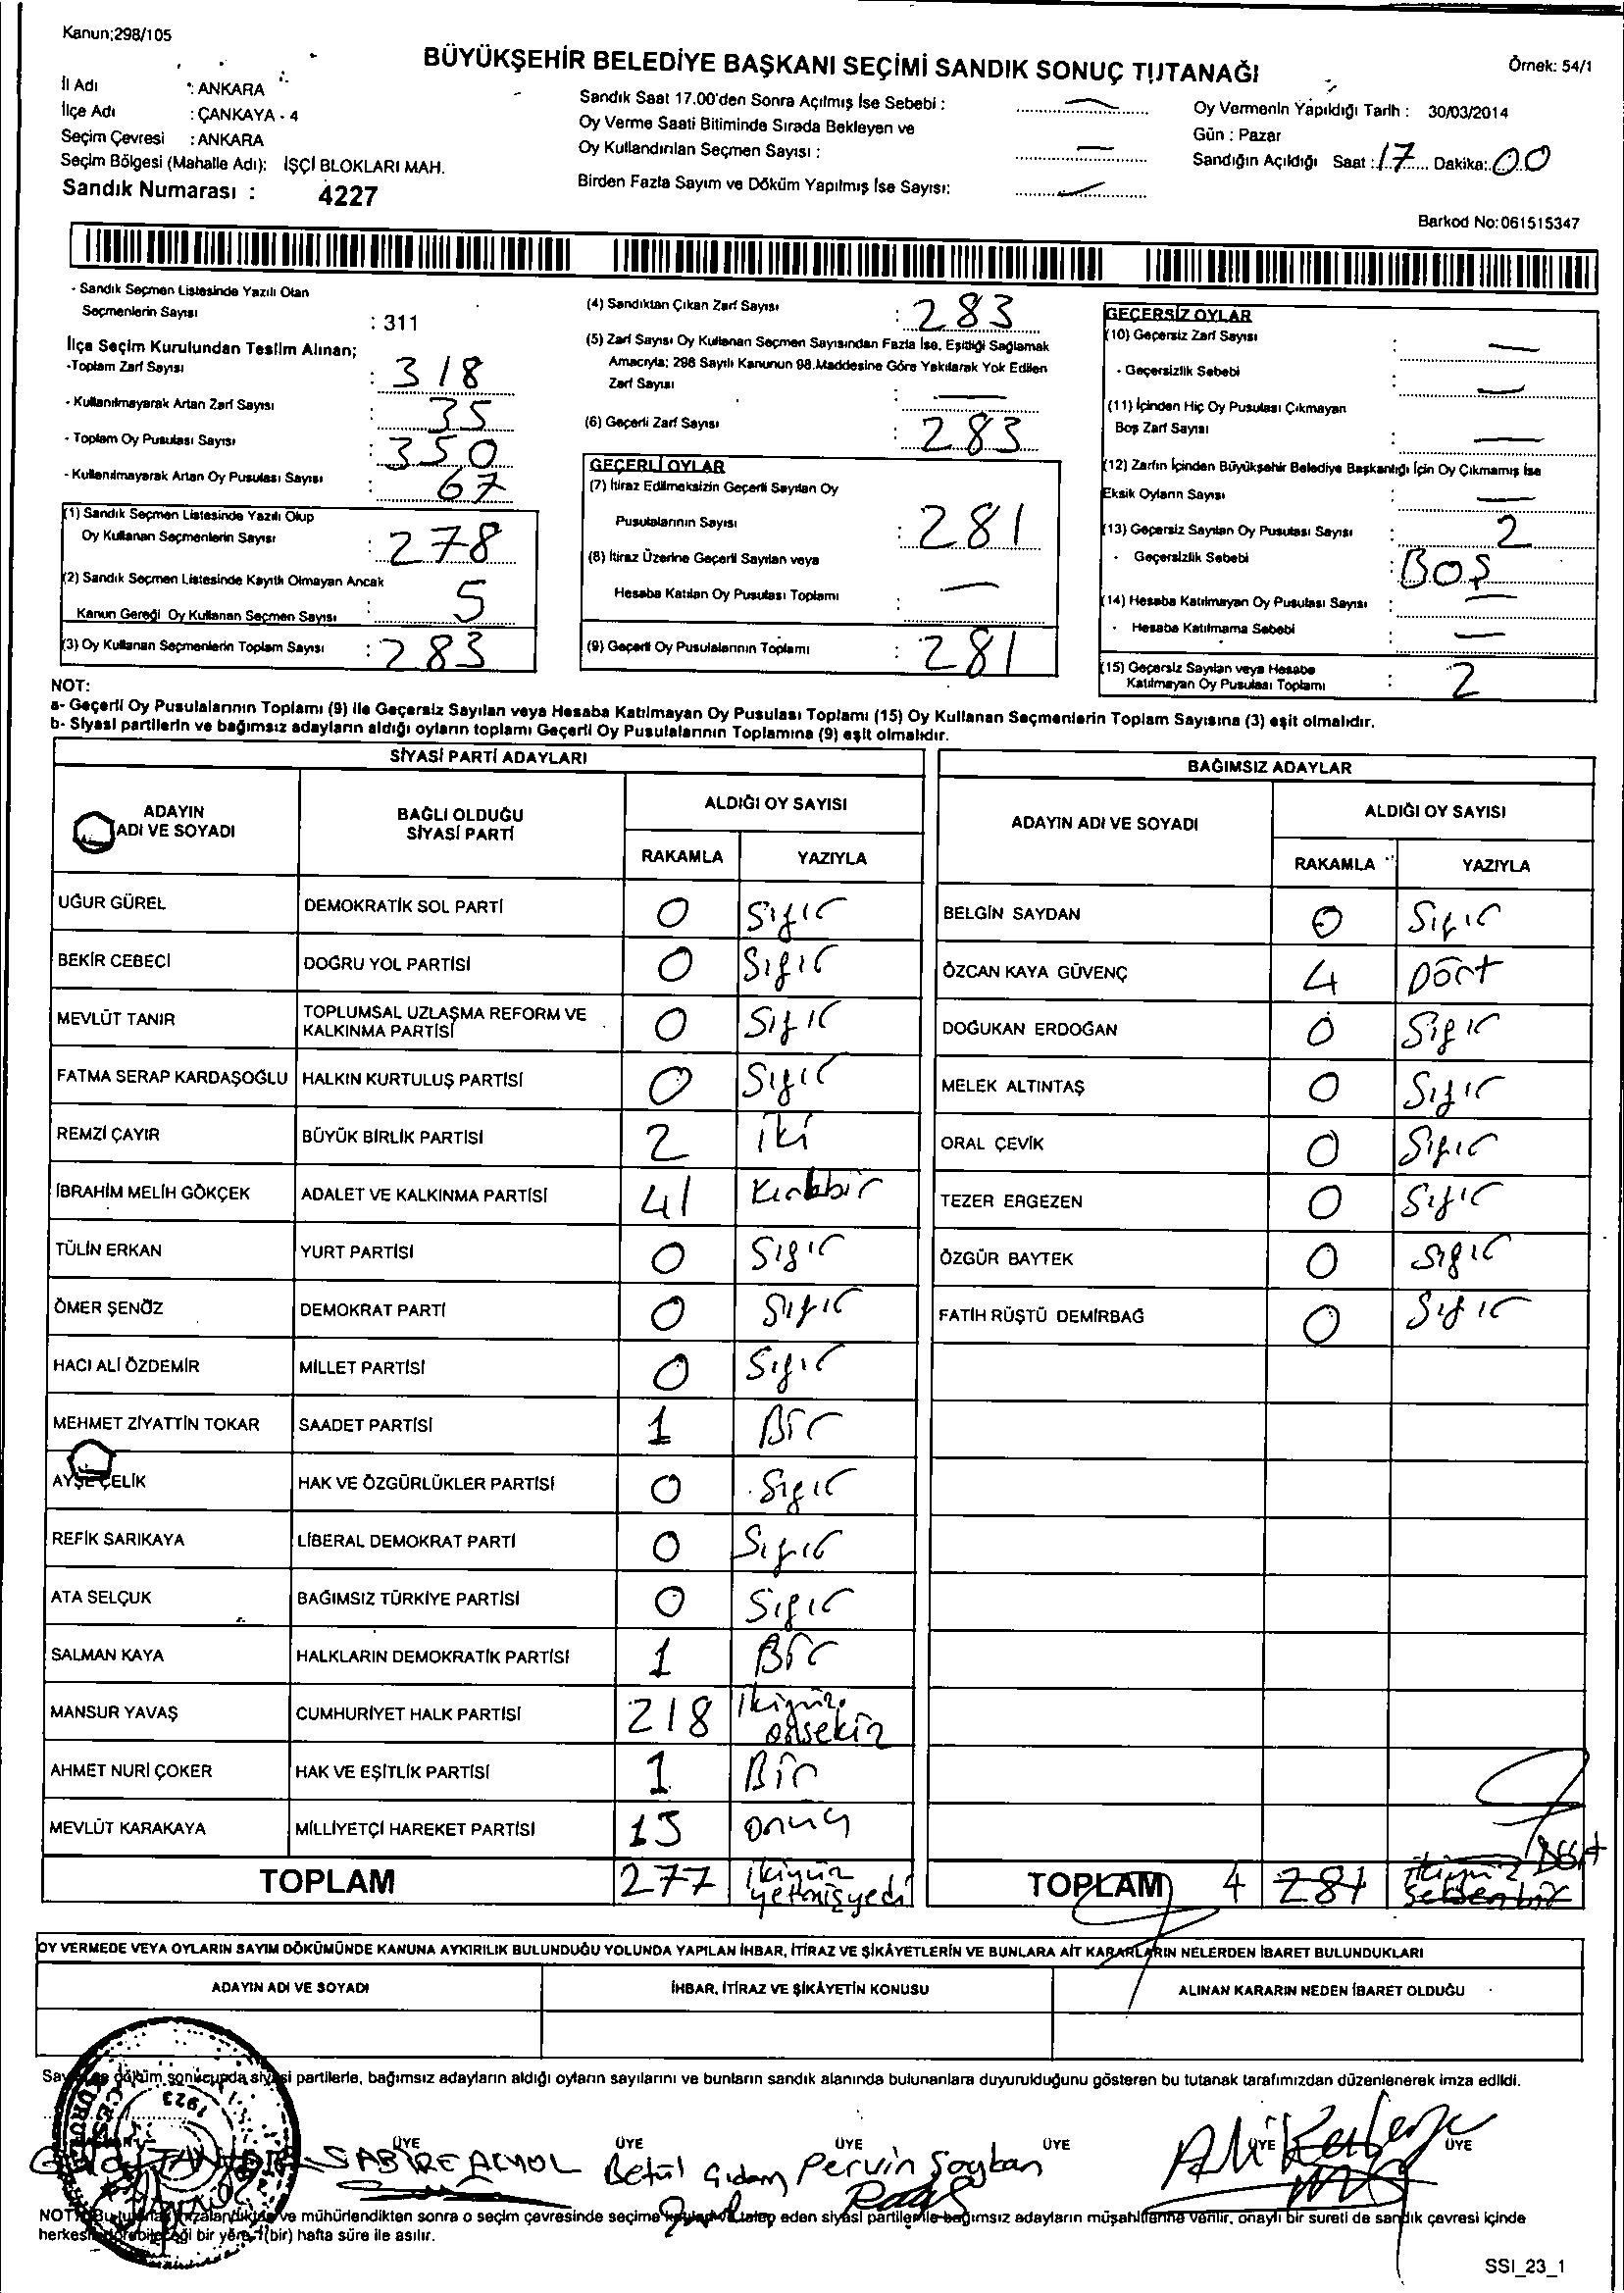 Kanun;298/105
BÜYÜKŞEHİR BELEDİYE BAŞKANI SEÇİMİ SANDIK SONUÇ TUTANAĞI
Örnek: 54/1
İl Adı : ANKARA
İlçe Adı : ÇANKAYA - 4
Seçim Çevresi : ANKARA
Seçim Bölgesi (Mahalle Adı): İŞÇİ BLOKLARI MAH.
Sandık Numarası : 4227
Sandık Saat 17.00'den Sonra Açılmış İse Sebebi : —
Oy Verme Saati Bitiminde Sırada Bekleyen ve
Oy Kullandırılan Seçmen Sayısı : —
Birden Fazla Sayım ve Döküm Yapılmış İse Sayısı: —
Oy Vermenin Yapıldığı Tarih : 30/03/2014
Gün : Pazar
Sandığın Açıldığı Saat : 17 Dakika: 00
Barkod No:061515347
- Sandık Seçmen Listesinde Yazılı Olan
Seçmenlerin Sayısı : 311
İlçe Seçim Kurulundan Teslim Alınan;
-Toplam Zarf Sayısı : 318
- Kullanılmayarak Artan Zarf Sayısı : 35
- Toplam Oy Pusulası Sayısı : 350
- Kullanılmayarak Artan Oy Pusulası Sayısı : 67
(1) Sandık Seçmen Listesinde Yazılı Olup
Oy Kullanan Seçmenlerin Sayısı : 278
(2) Sandık Seçmen Listesinde Kayıtlı Olmayan Ancak
Kanun Gereği Oy Kullanan Seçmen Sayısı : 5
(3) Oy Kullanan Seçmenlerin Toplam Sayısı : 283
(4) Sandıktan Çıkan Zarf Sayısı : 283
(5) Zarf Sayısı Oy Kullanan Seçmen Sayısından Fazla İse, Eşitliği Sağlamak
Amacıyla; 298 Sayılı Kanunun 98.Maddesine Göre Yakılarak Yok Edilen
Zarf Sayısı : —
(6) Geçerli Zarf Sayısı : 283
GEÇERLİ OYLAR
(7) İtiraz Edilmeksizin Geçerli Sayılan Oy
Pusulalarının Sayısı : 281
(8) İtiraz Üzerine Geçerli Sayılan veya
Hesaba Katılan Oy Pusulası Toplamı : —
(9) Geçerli Oy Pusulalarının Toplamı : 281
GEÇERSİZ OYLAR
(10) Geçersiz Zarf Sayısı : —
- Geçersizlik Sebebi : —
(11) İçinden Hiç Oy Pusulası Çıkmayan
Boş Zarf Sayısı : —
(12) Zarfın İçinden Büyükşehir Belediye Başkanlığı İçin Oy Çıkmamış İse
Eksik Oyların Sayısı : —
(13) Geçersiz Sayılan Oy Pusulası Sayısı : 2
- Geçersizlik Sebebi : BOŞ
(14) Hesaba Katılmayan Oy Pusulası Sayısı : —
- Hesaba Katılmama Sebebi : —
(15) Geçersiz Sayılan veya Hesaba
Katılmayan Oy Pusulası Toplamı : 2
NOT:
a- Geçerli Oy Pusulalarının Toplamı (9) ile Geçersiz Sayılan veya Hesaba Katılmayan Oy Pusulası Toplamı (15) Oy Kullanan Seçmenlerin Toplam Sayısına (3) eşit olmalıdır.
b- Siyasi partilerin ve bağımsız adayların aldığı oyların toplamı Geçerli Oy Pusulalarının Toplamına (9) eşit olmalıdır.
SİYASİ PARTİ ADAYLARI
ADAYIN ADI VE SOYADI BAĞLI OLDUĞU SİYASİ PARTİ ALDIĞI OY SAYISI
RAKAMLA YAZIYLA
UĞUR GÜREL DEMOKRATİK SOL PARTİ 0 Sıfır
BEKİR CEBECİ DOĞRU YOL PARTİSİ 0 Sıfır
MEVLÜT TANIR TOPLUMSAL UZLAŞMA REFORM VE KALKINMA PARTİSİ 0 Sıfır
FATMA SERAP KARDAŞOĞLU HALKIN KURTULUŞ PARTİSİ 0 Sıfır
REMZİ ÇAYIR BÜYÜK BİRLİK PARTİSİ 2 iki
İBRAHİM MELİH GÖKÇEK ADALET VE KALKINMA PARTİSİ 41 Kırkbir
TÜLİN ERKAN YURT PARTİSİ 0 Sıfır
ÖMER ŞENÖZ DEMOKRAT PARTİ 0 Sıfır
HACI ALİ ÖZDEMİR MİLLET PARTİSİ 0 Sıfır
MEHMET ZİYATTİN TOKAR SAADET PARTİSİ 1 Bir
AYŞE ÇELİK HAK VE ÖZGÜRLÜKLER PARTİSİ 0 Sıfır
REFİK SARIKAYA LİBERAL DEMOKRAT PARTİ 0 Sıfır
ATA SELÇUK BAĞIMSIZ TÜRKİYE PARTİSİ 0 Sıfır
SALMAN KAYA HALKLARIN DEMOKRATİK PARTİSİ 1 Bir
MANSUR YAVAŞ CUMHURİYET HALK PARTİSİ 218 ikiyüz onsekiz
AHMET NURİ ÇOKER HAK VE EŞİTLİK PARTİSİ 1 Bir
MEVLÜT KARAKAYA MİLLİYETÇİ HAREKET PARTİSİ 13 onüç
TOPLAM 277 ikiyüz yetmişyedi
BAĞIMSIZ ADAYLAR
ADAYIN ADI VE SOYADI ALDIĞI OY SAYISI
RAKAMLA YAZIYLA
BELGİN SAYDAN 0 Sıfır
ÖZCAN KAYA GÜVENÇ 4 Dört
DOĞUKAN ERDOĞAN 0 Sıfır
MELEK ALTINTAŞ 0 Sıfır
ORAL ÇEVİK 0 Sıfır
TEZER ERGEZEN 0 Sıfır
ÖZGÜR BAYTEK 0 Sıfır
FATİH RÜŞTÜ DEMİRBAĞ 0 Sıfır
TOPLAM 4 281 ikiyüz seksenbir Dört
OY VERMEDE VEYA OYLARIN SAYIM DÖKÜMÜNDE KANUNA AYKIRILIK BULUNDUĞU YOLUNDA YAPILAN İHBAR, İTİRAZ VE ŞİKÂYETLERİN VE BUNLARA AİT KARARLARIN NELERDEN İBARET BULUNDUKLARI
ADAYIN ADI VE SOYADI İHBAR, İTİRAZ VE ŞİKÂYETİN KONUSU ALINAN KARARIN NEDEN İBARET OLDUĞU
sonucunda siyasi partilerle, bağımsız adayların aldığı oyların sayılarını ve bunların sandık alanında bulunanlara duyurulduğunu gösteren bu tutanak tarafımızdan düzenlenerek imza edildi.
1923
ÜYE ÜYE ÜYE ÜYE ÜYE ÜYE
SABİRE AKYOL Betül Pervin Soyban Ali
NOT: ve mühürlendikten sonra o seçim çevresinde seçime talep eden siyasi partiler ile bağımsız adayların müşahitlerine verilir, onaylı bir sureti de sandık çevresi içinde
bir yere 1(bir) hafta süre ile asılır.
SSI_23_1